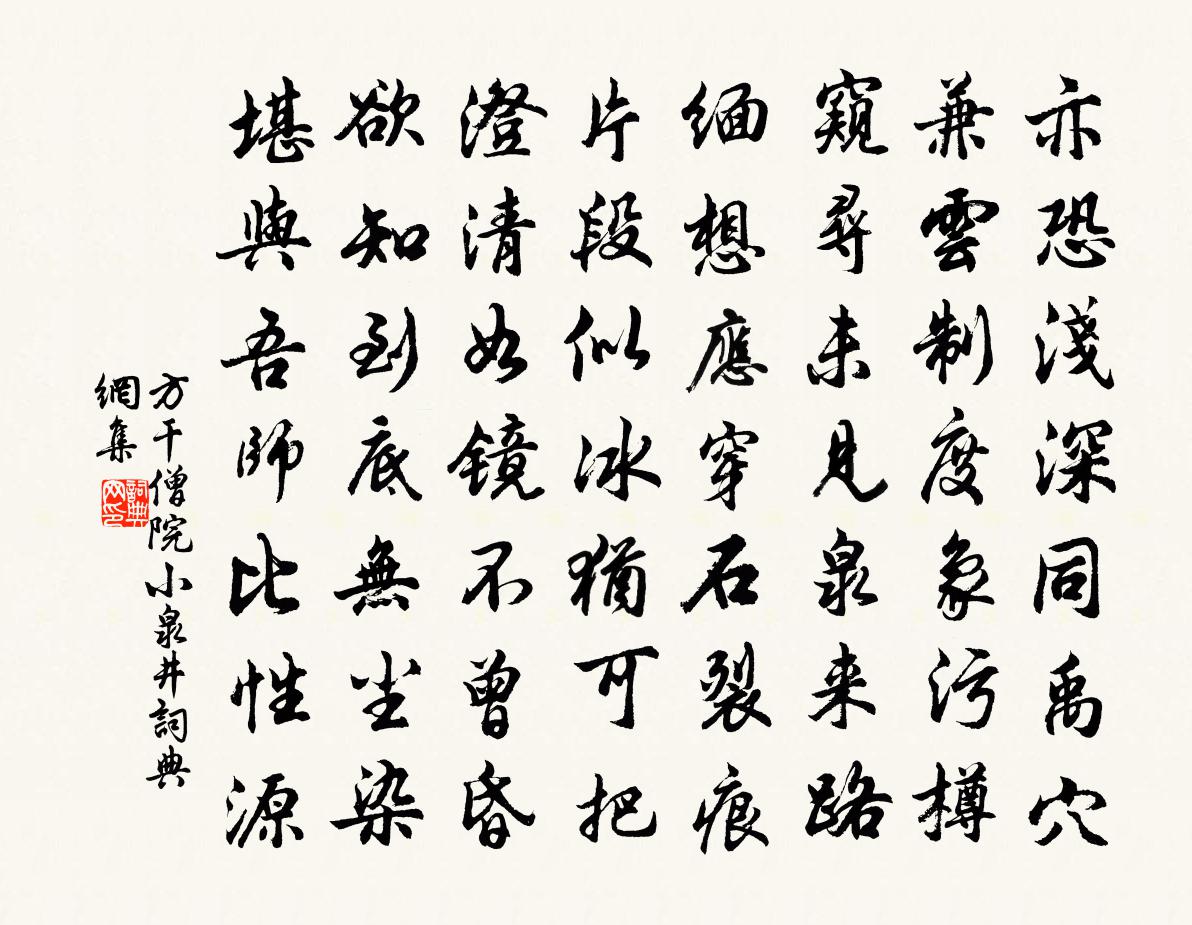 亦恐淺深同禹穴
兼雲制度象污樽
窺尋未見泉来路
缅想應穿石裂痕
片段似冰猶可把
澄清如鏡不曾昏
欲知到底無尘染
堪與吾師比性源
方干僧院小泉井詞典
網集
詞典
网印